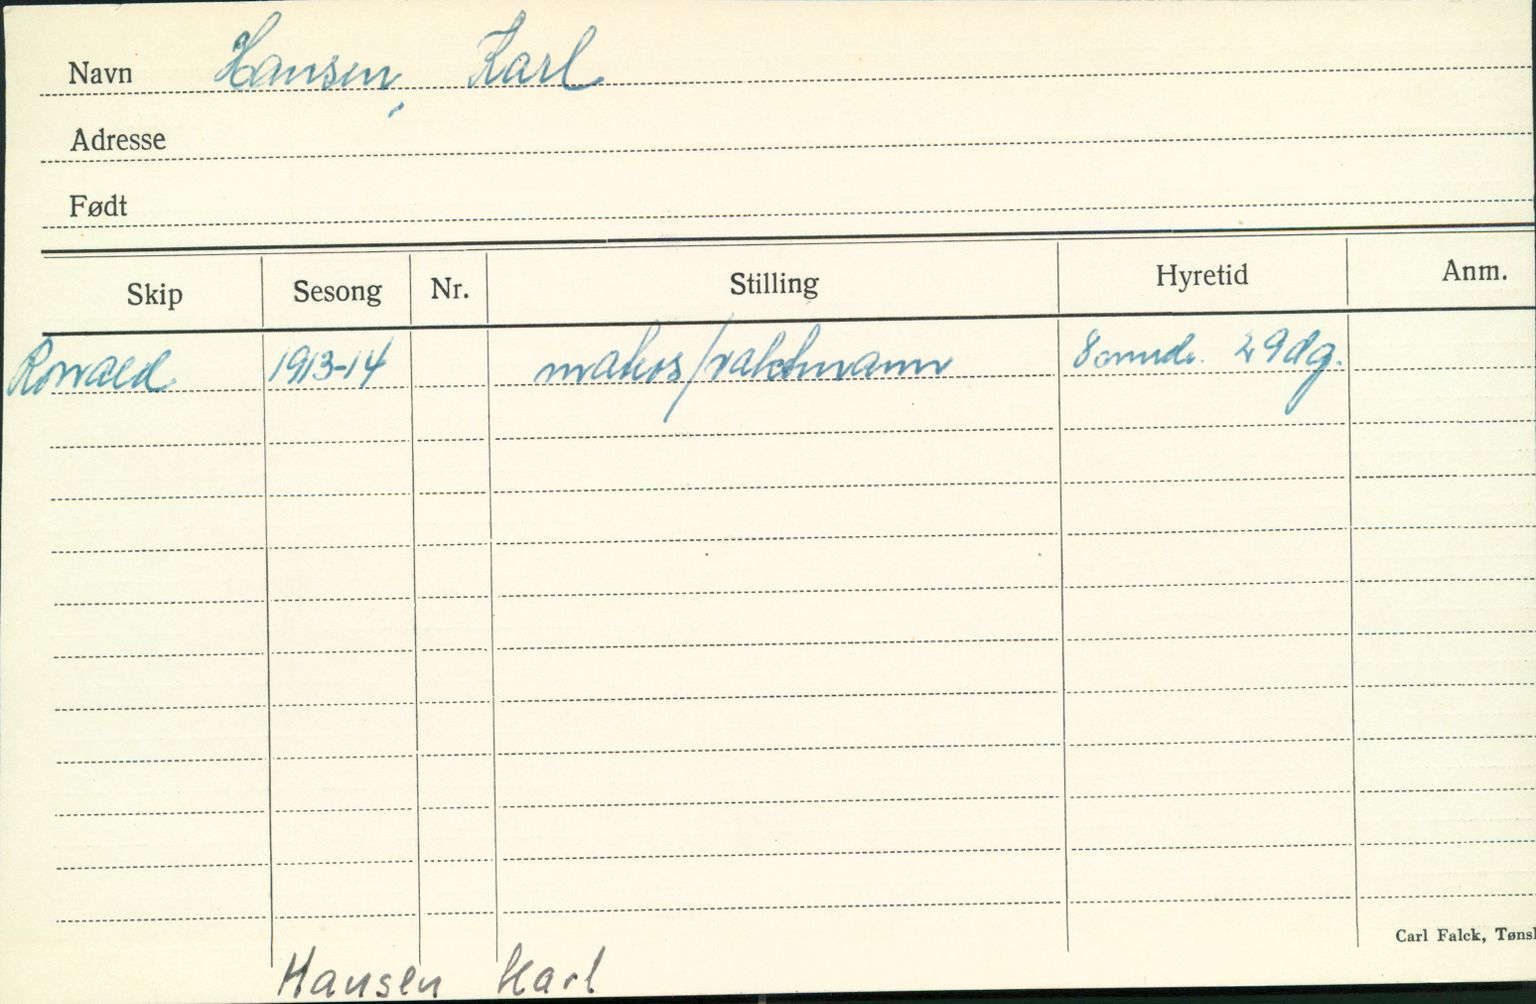 Navn Hansen, Karl
Adresse
Født
Skip Sesong Nr. Stilling Hyretid Anm.
Ronald 1913-14 matros/vaktmann 8 mnd. 29 dg.
Carl Falck, Tønsb
Hansen Karl